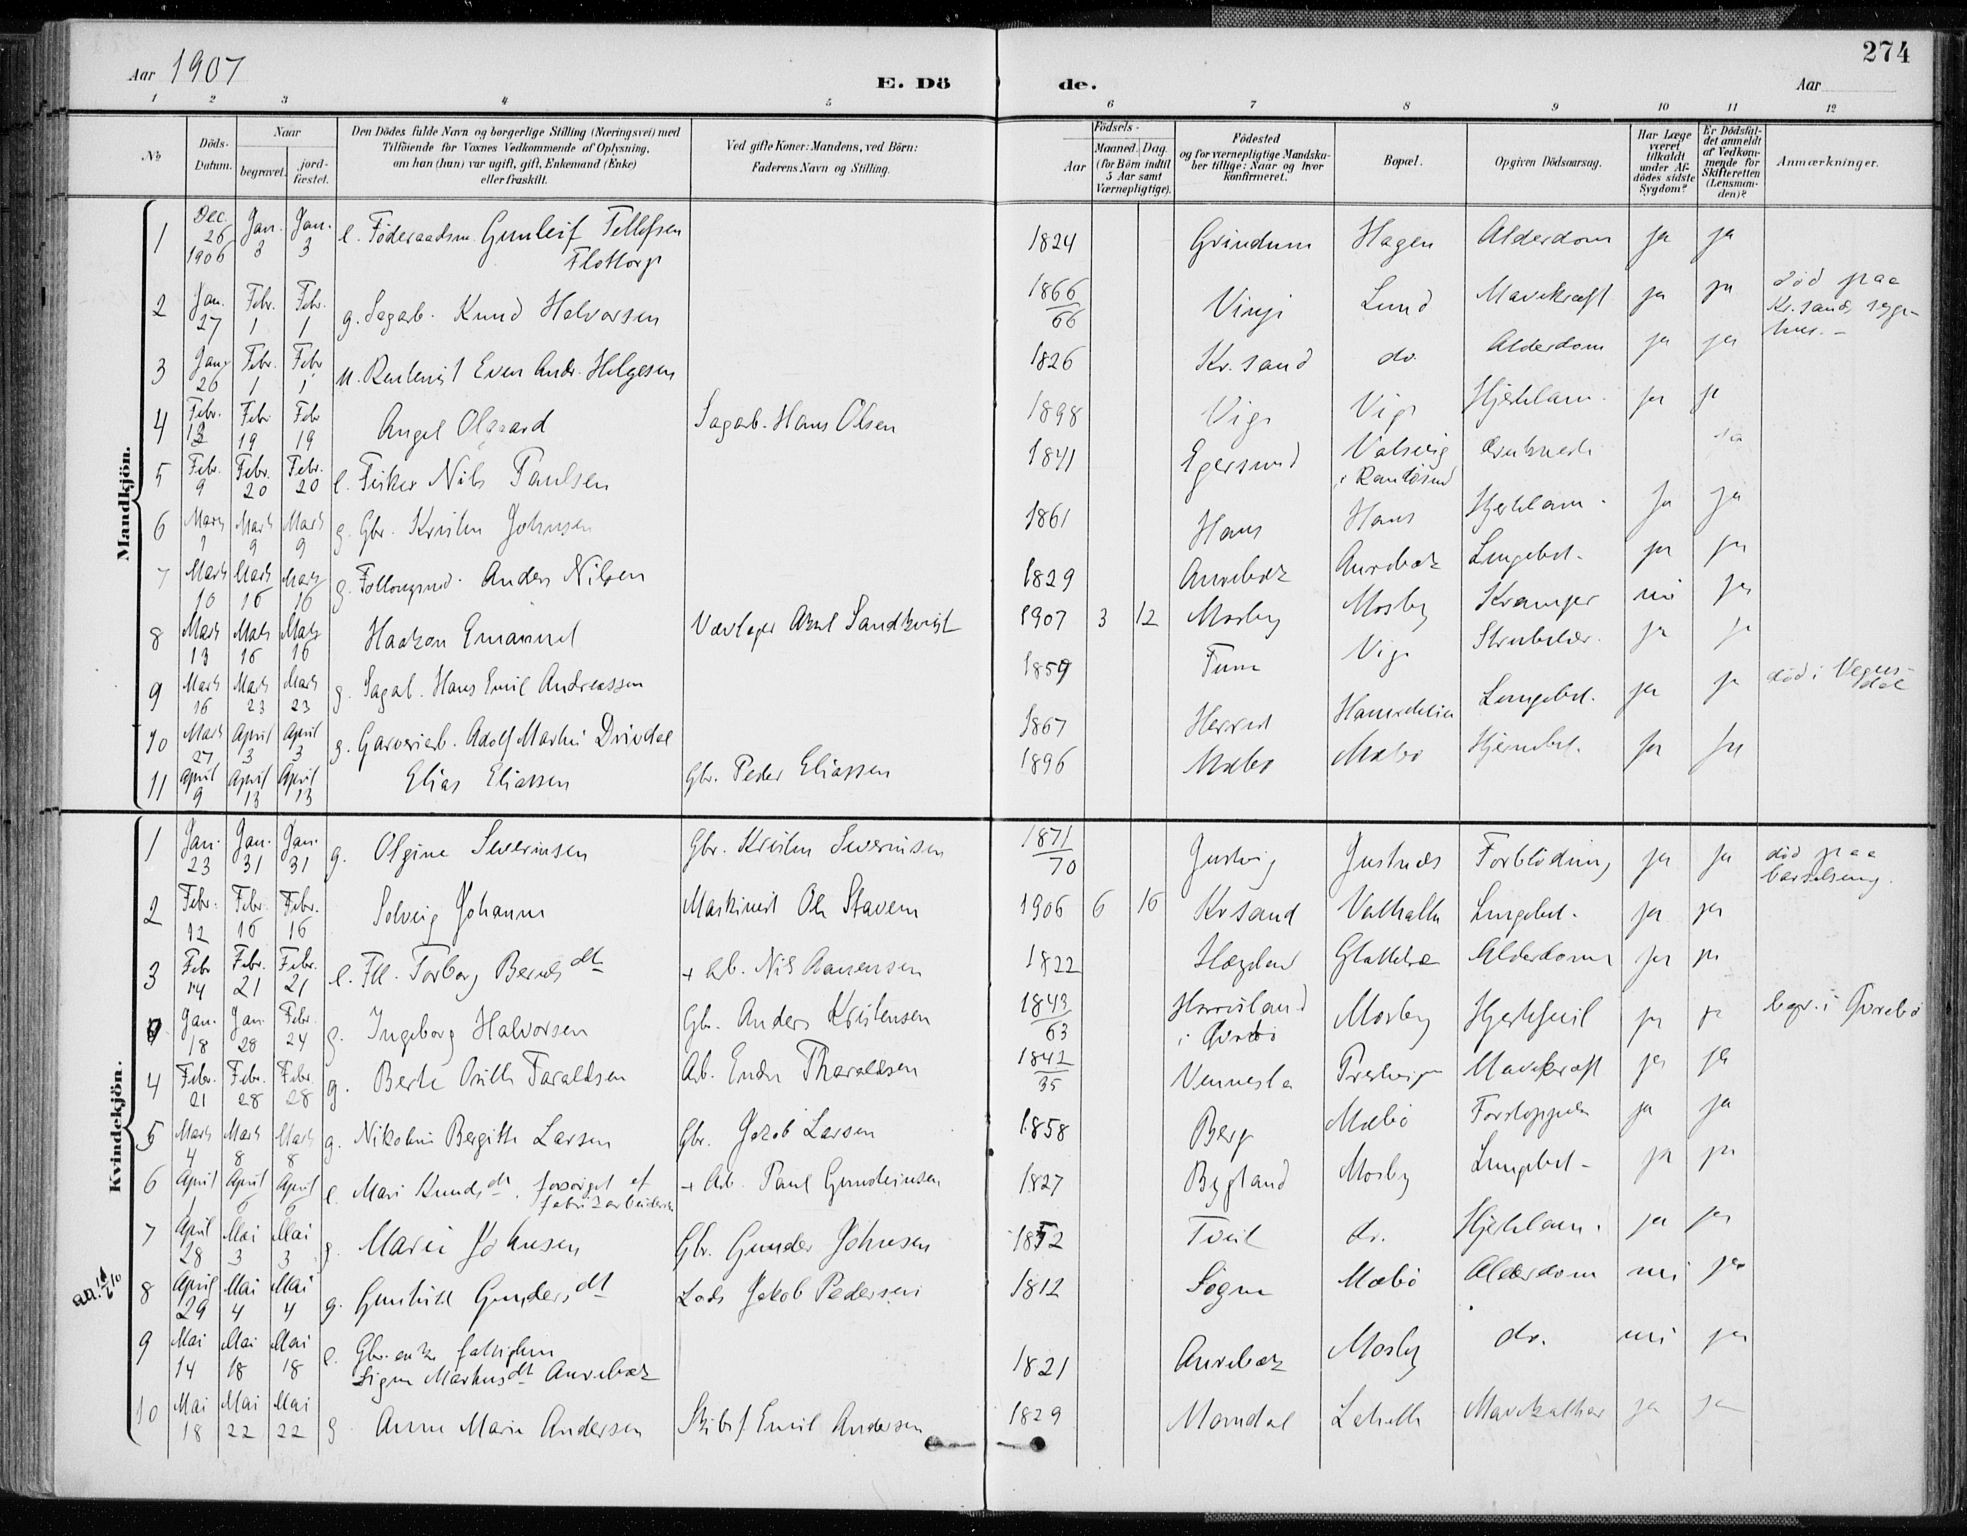 274
Aar 1907
E. Dö de.
Aar
1 2 3 4 5 6 7 8 9 10 11 12
No
Döds-Datum.
Naar
begravet.
jord-fæstet.
Den Dödes fulde Navn og borgerlige Stilling (Næringsvei) med
Tilföiende for Voxnes Vedkommende af Oplysning,
om han (hun) var ugift, gift, Enkemand (Enke)
eller fraskilt.
Ved gifte Koner: Mandens, ved Börn:
Faderens Navn og Stilling.
Födsels-
Aar
Maaned. Dag.
(for Börn indtil
5 Aar samt
Værnepligtige).
Födested
og for værnepligtige Mandska-
ber tillige: Naar og hvor
konfirmeret.
Bopæl.
Opgiven Dödsaarsag.
Har Læge
været
tilkaldt
under Af-
dödes sidste
Sygdom?
Er Dödsfal-
det anmeldt
af Vedkom-
mende for
Skifteretten
(Lensman-
den)?
Anmærkninger.
Mandkjön.
1 Dec. 26 1906 Jan. 3 Jan. 3 e. Föderaadsm. Gunleif Tellefsen Flottorp 1824 Grindum Hagen Alderdom ja ja
2 Jan. 27 Febr. 1 Febr. 1 g. Sagarb. Knud Halvorsen 1866/66 Lund Mavekræft ja ja död paa Kr.sands syge-hus.-
3 Jan. 26 Febr. 1 Febr. 1 u. Rentenist Even Andr. Helgesen 1826 Kr.sand do. Alderdom ja ja
4 Febr. Febr. 19 Febr. 19 Angel Olgaard Sagarb. Hans Olsen 1898 Vige Vige Hjertelam. ja ja
5 Febr. 9 Febr. 20 Febr. 20 e. Fisker Nils Paulsen 1841 Egersund i Randösund
6 Marts Marts 9 Marts 9 g. Gbr. Kristen Johnsen 1861 Haus Haus Hjertelam. ja ja
7 Marts 10 Marts 16 Marts 16 g. Anders Nilsen 1829 Aurebæk Aurebæk Lungebet. ja ja
8 Marts 13 Marts 16 Marts 16 Haakon Emanuel Sandkvist 1907 3 12 Mosby Mosby Kramper nei ja
9 Marts 16 Marts 23 Marts 23 g. Sagarb. Hans Emil Andreassen 1859 Vige ja ja död i Vegus-dal
10 Marts 27 April 3 April 3 g. Garveriarb. Adolf Martin Drivdal 1867 Lungebet. ja ja
11 April 9 April 13 April 13 Elias Eliassen Gbr. Peder Eliassen 1896 Mæbö Mæbö Hjernebet. ja ja
Kvindekjön.
1 Jan. 23 Jan. 31 Jan. 31 g. Olgine Severinsen Gbr. Kristen Severinsen 1871/70 Justvig Justnæs Forblödning ja ja död paa barselseng.
2 Febr. 12 Febr. 16 Febr. 16 Solveig Johanne Maskinist Ole Stavem 1906 6 16 Kr.sand Valhalla Lungebet. ja ja
3 Febr. 14 Febr. 21 Febr. 21 e. Fll. Torborg Berntsdtr + Arb. Nils Aanensen 1822 Alderdom ja ja
Jan. 18 Jan. 28 Febr. 24 g. Ingeborg Halvorsen Gbr. Anders Kristensen 1843/63 Mosby Hjertefeil ja ja begr. i Övrebö
4 Febr. 21 Febr. 28 Febr. 28 g. Berte Taraldsen Arb. Endre Tharaldsen 1842/35 Vennesla Mavekræft ja ja
5 Marts 4 Marts 8 Marts 8 g. Nikoline Bergitte Larsen Gbr. Jakob Larsen 1858 Berg Mæbö Forstoppelse ja ja
6 April 1 April 6 April 6 e. Mari Knudsdtr. forsörget af fabrikarbeideren + Arb. Paul Gundersen 1827 Bygland Mosby Lungebet. ja ja
7 April 28 Mai 3 Mai 3 g. Marie Johnsen Gbr. Gunder Johnsen 1852 Tveit do. Hjertelam. ja ja
8 April 29 Mai 4 Mai 4 g. Gunhild Gundersdt Lods Jakob Pedersen 1812 Sögne Mæbö Alderdom nei ja
9 Mai 14 Mai 18 Mai 18 e. Gbr.enke fattiglem Signe Markusdt Aurebæk 1821 Aurebæk Mosby do. nei ja
10 Mai 18 Mai 22 Mai 22 g Anne Marie Andersen Skibsf. Emil Andersen 1829 Mandal Mavekatharr ja ja